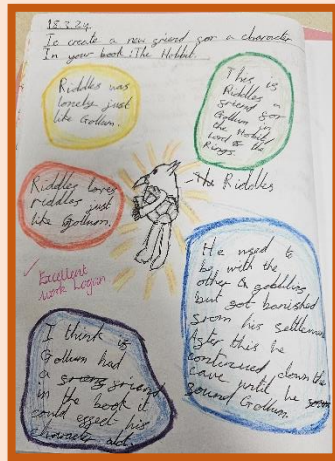 18.3.24
To create a new friend for a character
In your book: The Hobbit.
Riddles was
lonely just
like Gollum.
This is
Riddles a
friend for
Gollum in
the Hobbit
Lord of the
Rings.
Riddles loves
riddles just
like Gollum.
The Riddles
Excellent
work Logan
He used to
be with the
other gobblins
but got banished
from his settlement
After this he
continued down the
cave until he
found Gollum.
I think if
Gollum had
a friend
in the book it
could effect his
character alot.